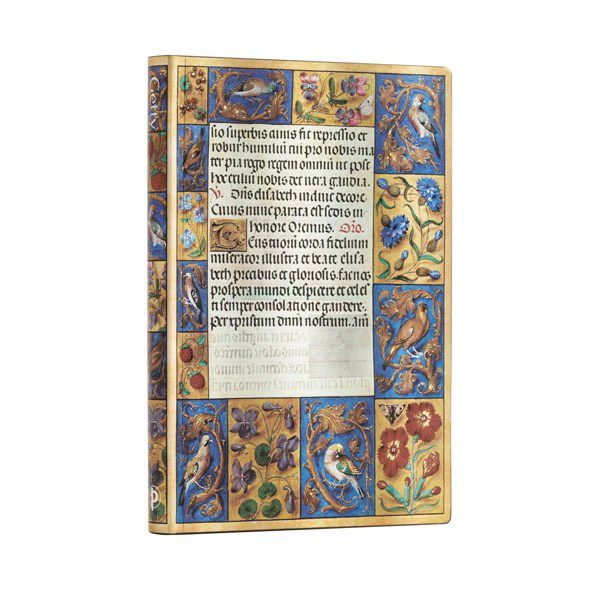 sio superbis cuius fit repressio et
robur humiliū tui pro nobis ma
ter pia rogo regem omniū ut post
hoc exiliū nobis det uera gaudia.
Dn̄s elisabeth induit decore
Cuius nunc parata est sedes in
honore Oremus. Oro.
Deus tuorū corda fidelium
miserator illustra et beate elisa
beth precibus et gloriosis. fac nos
prospera mundi despicere et celes
ti semper consolatione gaudere.
Per xpristum dnm̄ nostrum. am̄